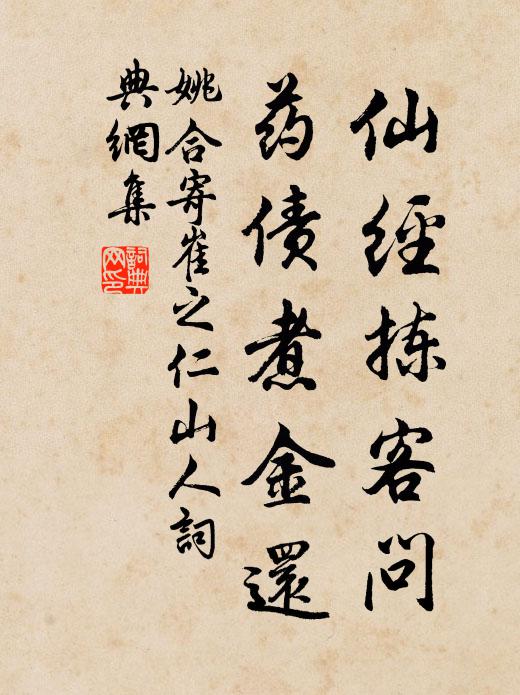 仙經拣客问
药债煮金還
姚合寄崔之仁山人詞
典網集
詞典
网印